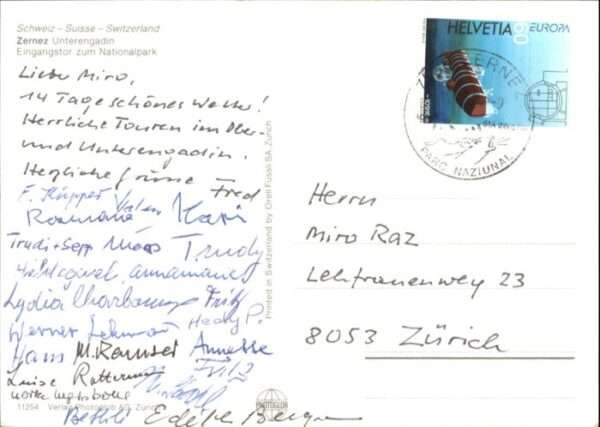 Schweiz – Suisse – Switzerland
Zernez Unterengadin
Eingangstor zum Nationalpark
Lieber Miro,
14 Tage schönes Wetter!
Herrliche Touren im Ober-
und Unterengadin.
Herzliche Grüsse
Fred
F. Küpper
Rosmarie
Kari
Trudi + Sepp
Trudy
Hildegard Annamarie
Lydia Fritz
Werner Lehmann
Hedy P.
Hans M. Ramser Annette
Luise
Bethli Edith Berger
11254 Verlag Photoglob AG, Zürich
PHOTOGLOB
Printed in Switzerland by Orell Füssli SA Zürich
HELVETIA
90
EUROPA
ZERNEZ
PARC NAZIUNAL
Herrn
Miro Raz
Lehfrauenweg 23
8053 Zürich